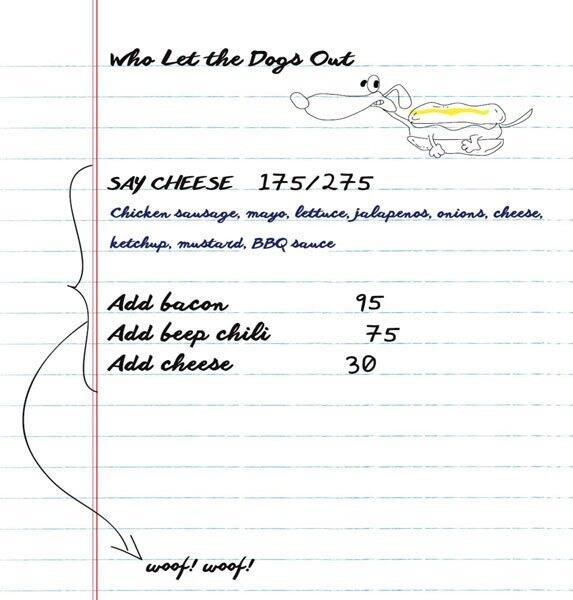 Who Let the Dogs Out
SAY CHEESE 175/275
Chicken sausage, mayo, lettuce, jalapenos, onions, cheese,
ketchup, mustard, BBQ sauce
Add bacon 95
Add beep chili 75
Add cheese 30
woof! woof!